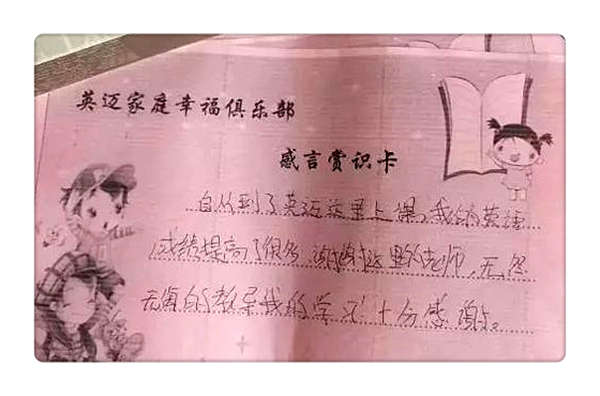 英迈家庭幸福俱乐部
感言赏识卡
自从到了英迈这里上课,我的英语
成绩提高了很多,谢谢这里的老师,无怨
无悔的教导我的学习!十分感谢。